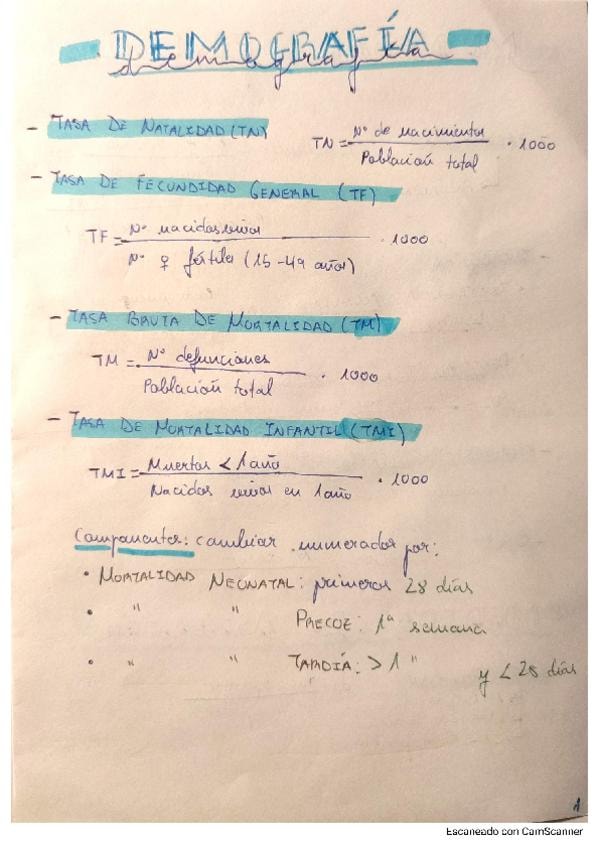 DEMOGRAFÍA
demografía
- TASA DE NATALIDAD (TN)
TN = Nº de nacimientos / Población total · 1000
- TASA DE FECUNDIDAD GENERAL (TF)
TF = Nº nacidos vivos / Nº ♀ fértiles (15-49 años) · 1000
- TASA BRUTA DE MORTALIDAD (TM)
TM = Nº defunciones / Población total · 1000
- TASA DE MORTALIDAD INFANTIL (TMI)
TMI = Muertos < 1 año / Nacidos vivos en 1 año · 1000
Componentes: cambiar numerador por:
• MORTALIDAD NEONATAL: primeros 28 días
• " " PRECOZ: 1ª semana
• " " TARDÍA: > 1 " y < 28 días
1
Escaneado con CamScanner